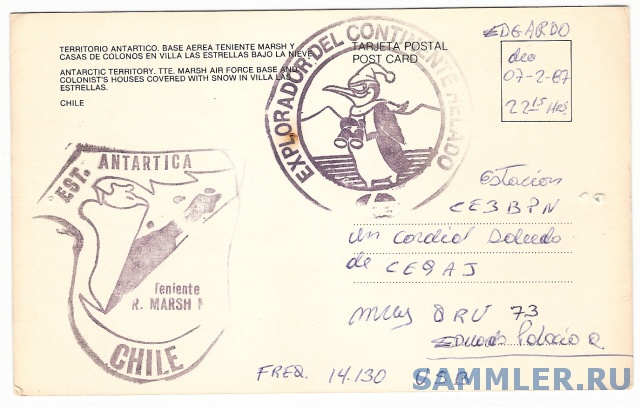 TERRITORIO ANTARTICO. BASE AEREA TENIENTE MARSH Y
CASAS DE COLONOS EN VILLA LAS ESTRELLAS BAJO LA NIEVE.
ANTARCTIC TERRITORY. TTE. MARSH AIR FORCE BASE AND
COLONIST'S HOUSES COVERED WITH SNOW IN VILLA LAS
ESTRELLAS.
CHILE
TARJETA POSTAL
POST CARD
EXPLORADOR DEL CONTINENTE HELADO
EDGARDO
07-2-87
22 15 HRS
EST. ANTARTICA
Teniente
R. MARSH
CHILE
Estacion
CE3BPN
un cordial Saludo
de CE9AJ
73
FREQ. 14.130 USB
SAMMLER.RU